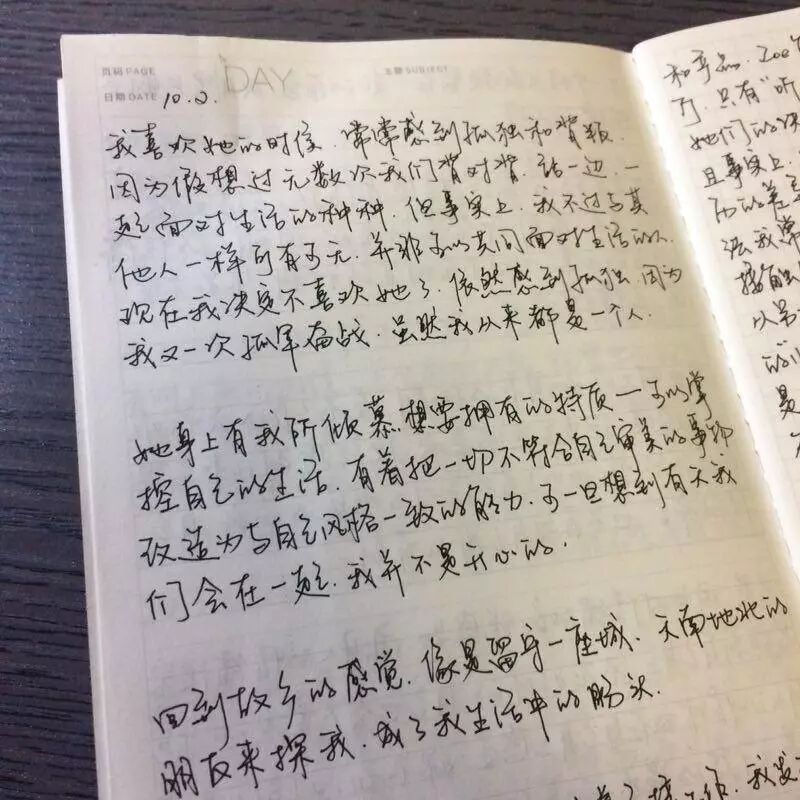 页码 PAGE
DAY
主题 SUBJECT
日期 DATE 10.2.
我喜欢她的时候，常常感到孤独和背叛．
因为假想过无数次我们背对背．站一边．一
起面对生活的种种．但事实上．我不过与其
他人一样可有可无．并非可以共同面对生活的人．
现在我决定不喜欢她了．依然感到孤独．因为
我又一次孤军奋战．虽然我从来都是一个人．
她身上有我所倾慕．想要拥有的特质—可以掌
控自己的生活．有着把一切不符合自己审美的事物
改造为与自己风格一致的能力．可一旦想到有天我
们会在一起．我并不是开心的．
回到故乡的感觉．像是留守一座城．天南地北的
朋友来探我．成了我生活中的盼头．
Zoe
了．只有"听
她们的决
且事实上．
法我常
接触
以另
的
是